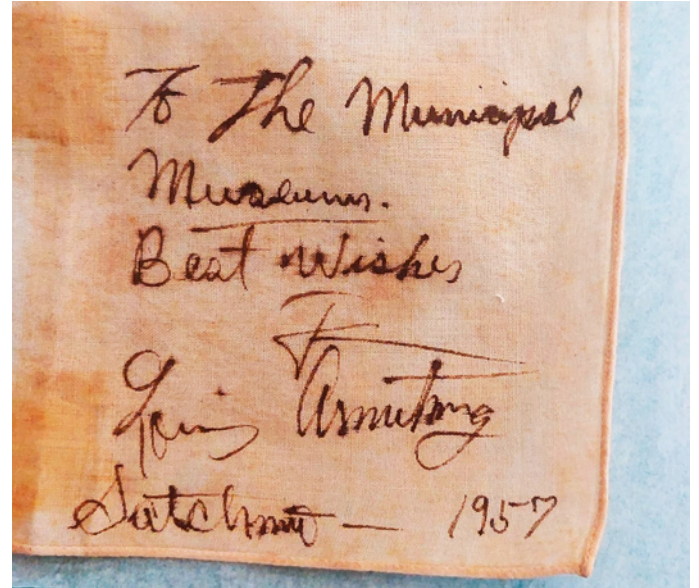 To The Municipal
Museum.
Best Wishes
Louis Armstrong
Satchmo — 1957